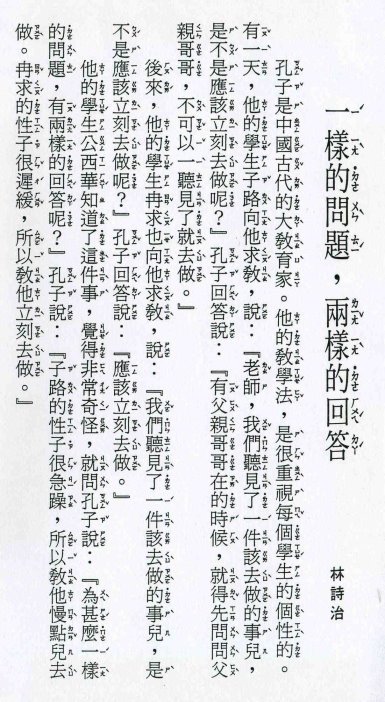 一樣的問題，兩樣的回答
林詩治
孔子是中國古代的大教育家。他的教學法，是很重視每個學生的個性的。
有一天，他的學生子路向他求教，說：『老師，我們聽見了一件該去做的事兒，
是不是應該立刻去做呢？』孔子回答說：『有父親哥哥在的時候，就得先問問父
親哥哥，不可以一聽見了就去做。』
後來，他的學生冉求也向他求教，說：『我們聽見了一件該去做的事兒，是
不是應該立刻去做呢？』孔子回答說：『應該立刻去做。』
他的學生公西華知道了這件事，覺得非常奇怪，就問孔子說：『為甚麼一樣
的問題，有兩樣的回答呢？』孔子說：『子路的性子很急躁，所以教他慢點兒去
做。冉求的性子很遲緩，所以教他立刻去做。』